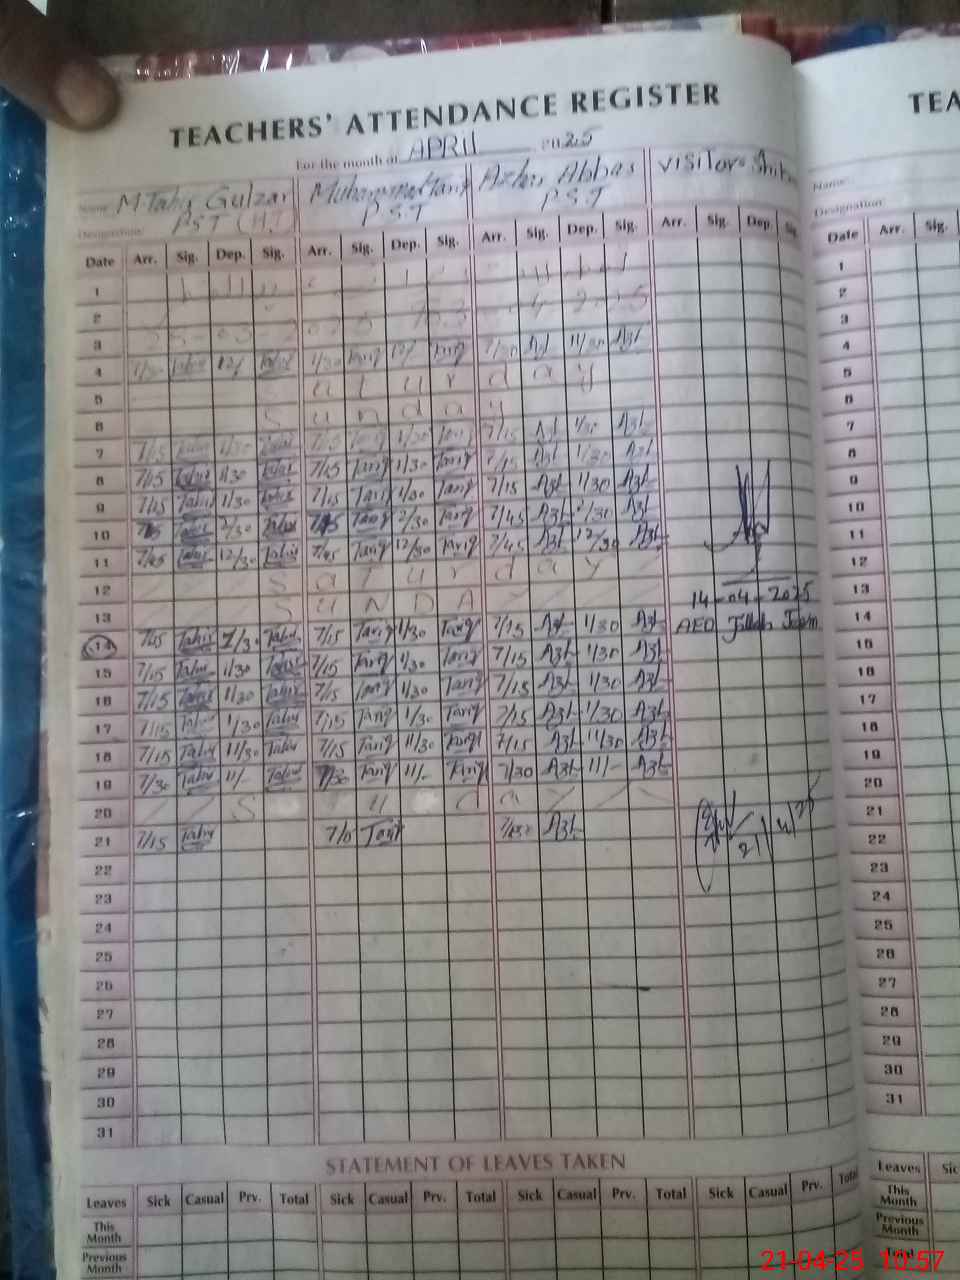 TEACHERS' ATTENDANCE REGISTER
TEA
For the month of APRIL 2025
Name: M Tahir Gulzar Muhammad Tariq Azhar Abbas VISITORS
Name:
Designation: PST (H.T) P.S.T P.S.T
Designation:
Date Arr. Sig. Dep. Sig. Arr. Sig. Dep. Sig. Arr. Sig. Dep. Sig. Arr. Sig. Dep.
Date Arr. Sig.
1
2
3
4 7/30 Tahir 12/ Tahir 7/30 Tariq 12/ Tariq 7/30 Azh 11/30 Azh
5 Saturday
6 Sunday
7 7/15 Tahir 1/30 Tahir 7/15 Tariq 1/30 Tariq 7/15 Azh 1/30 Azh
8 7/15 Tahir 1/30 Tahir 7/15 Tariq 1/30 Tariq 7/15 Azh 1/30 Azh
9 7/15 Tahir 1/30 Tahir 7/15 Tariq 1/30 Tariq 7/15 Azh 1/30 Azh
10 Tahir 2/30 Tahir Tariq 2/30 Tariq 7/45 Azh 2/30 Azh
11 7/45 Tahir 12/30 Tahir 7/45 Tariq 12/30 Tariq 7/45 Azh 12/30 Azh
12 Saturday
13 SUNDAY 14-04-2025
14 7/15 Tahir 1/30 Tahir 7/15 Tariq 1/30 Tariq 7/15 Azh 1/30 Azh AEO
15 7/15 Tahir 1/30 Tahir 7/15 Tariq 1/30 Tariq 7/15 Azh 1/30 Azh
16 7/15 Tahir 1/30 Tahir 7/15 Tariq 1/30 Tariq 7/15 Azh 1/30 Azh
17 7/15 Tahir 1/30 Tahir 7/15 Tariq 1/30 Tariq 7/15 Azh 1/30 Azh
18 7/15 Tahir 11/30 Tahir 7/15 Tariq 11/30 Tariq 7/15 Azh 11/30 Azh
19 7/30 Tahir 11/- Tahir 7/30 Tariq 11/- Tariq 7/30 Azh 11/- Azh
20 Sunday
21 7/15 Tahir Tariq Azh
22
23
24
25
26
27
28
29
30
31
1
2
3
4
5
6
7
8
9
10
11
12
13
14
15
16
17
18
19
20
21
22
23
24
25
26
27
28
29
30
31
STATEMENT OF LEAVES TAKEN
Leaves Sick Casual Prv. Total Sick Casual Prv. Total Sick Casual Prv. Total Sick Casual Prv. Total
This Month
Previous Month
Leaves
This Month
Previous Month
Total
21-04-25 10:57